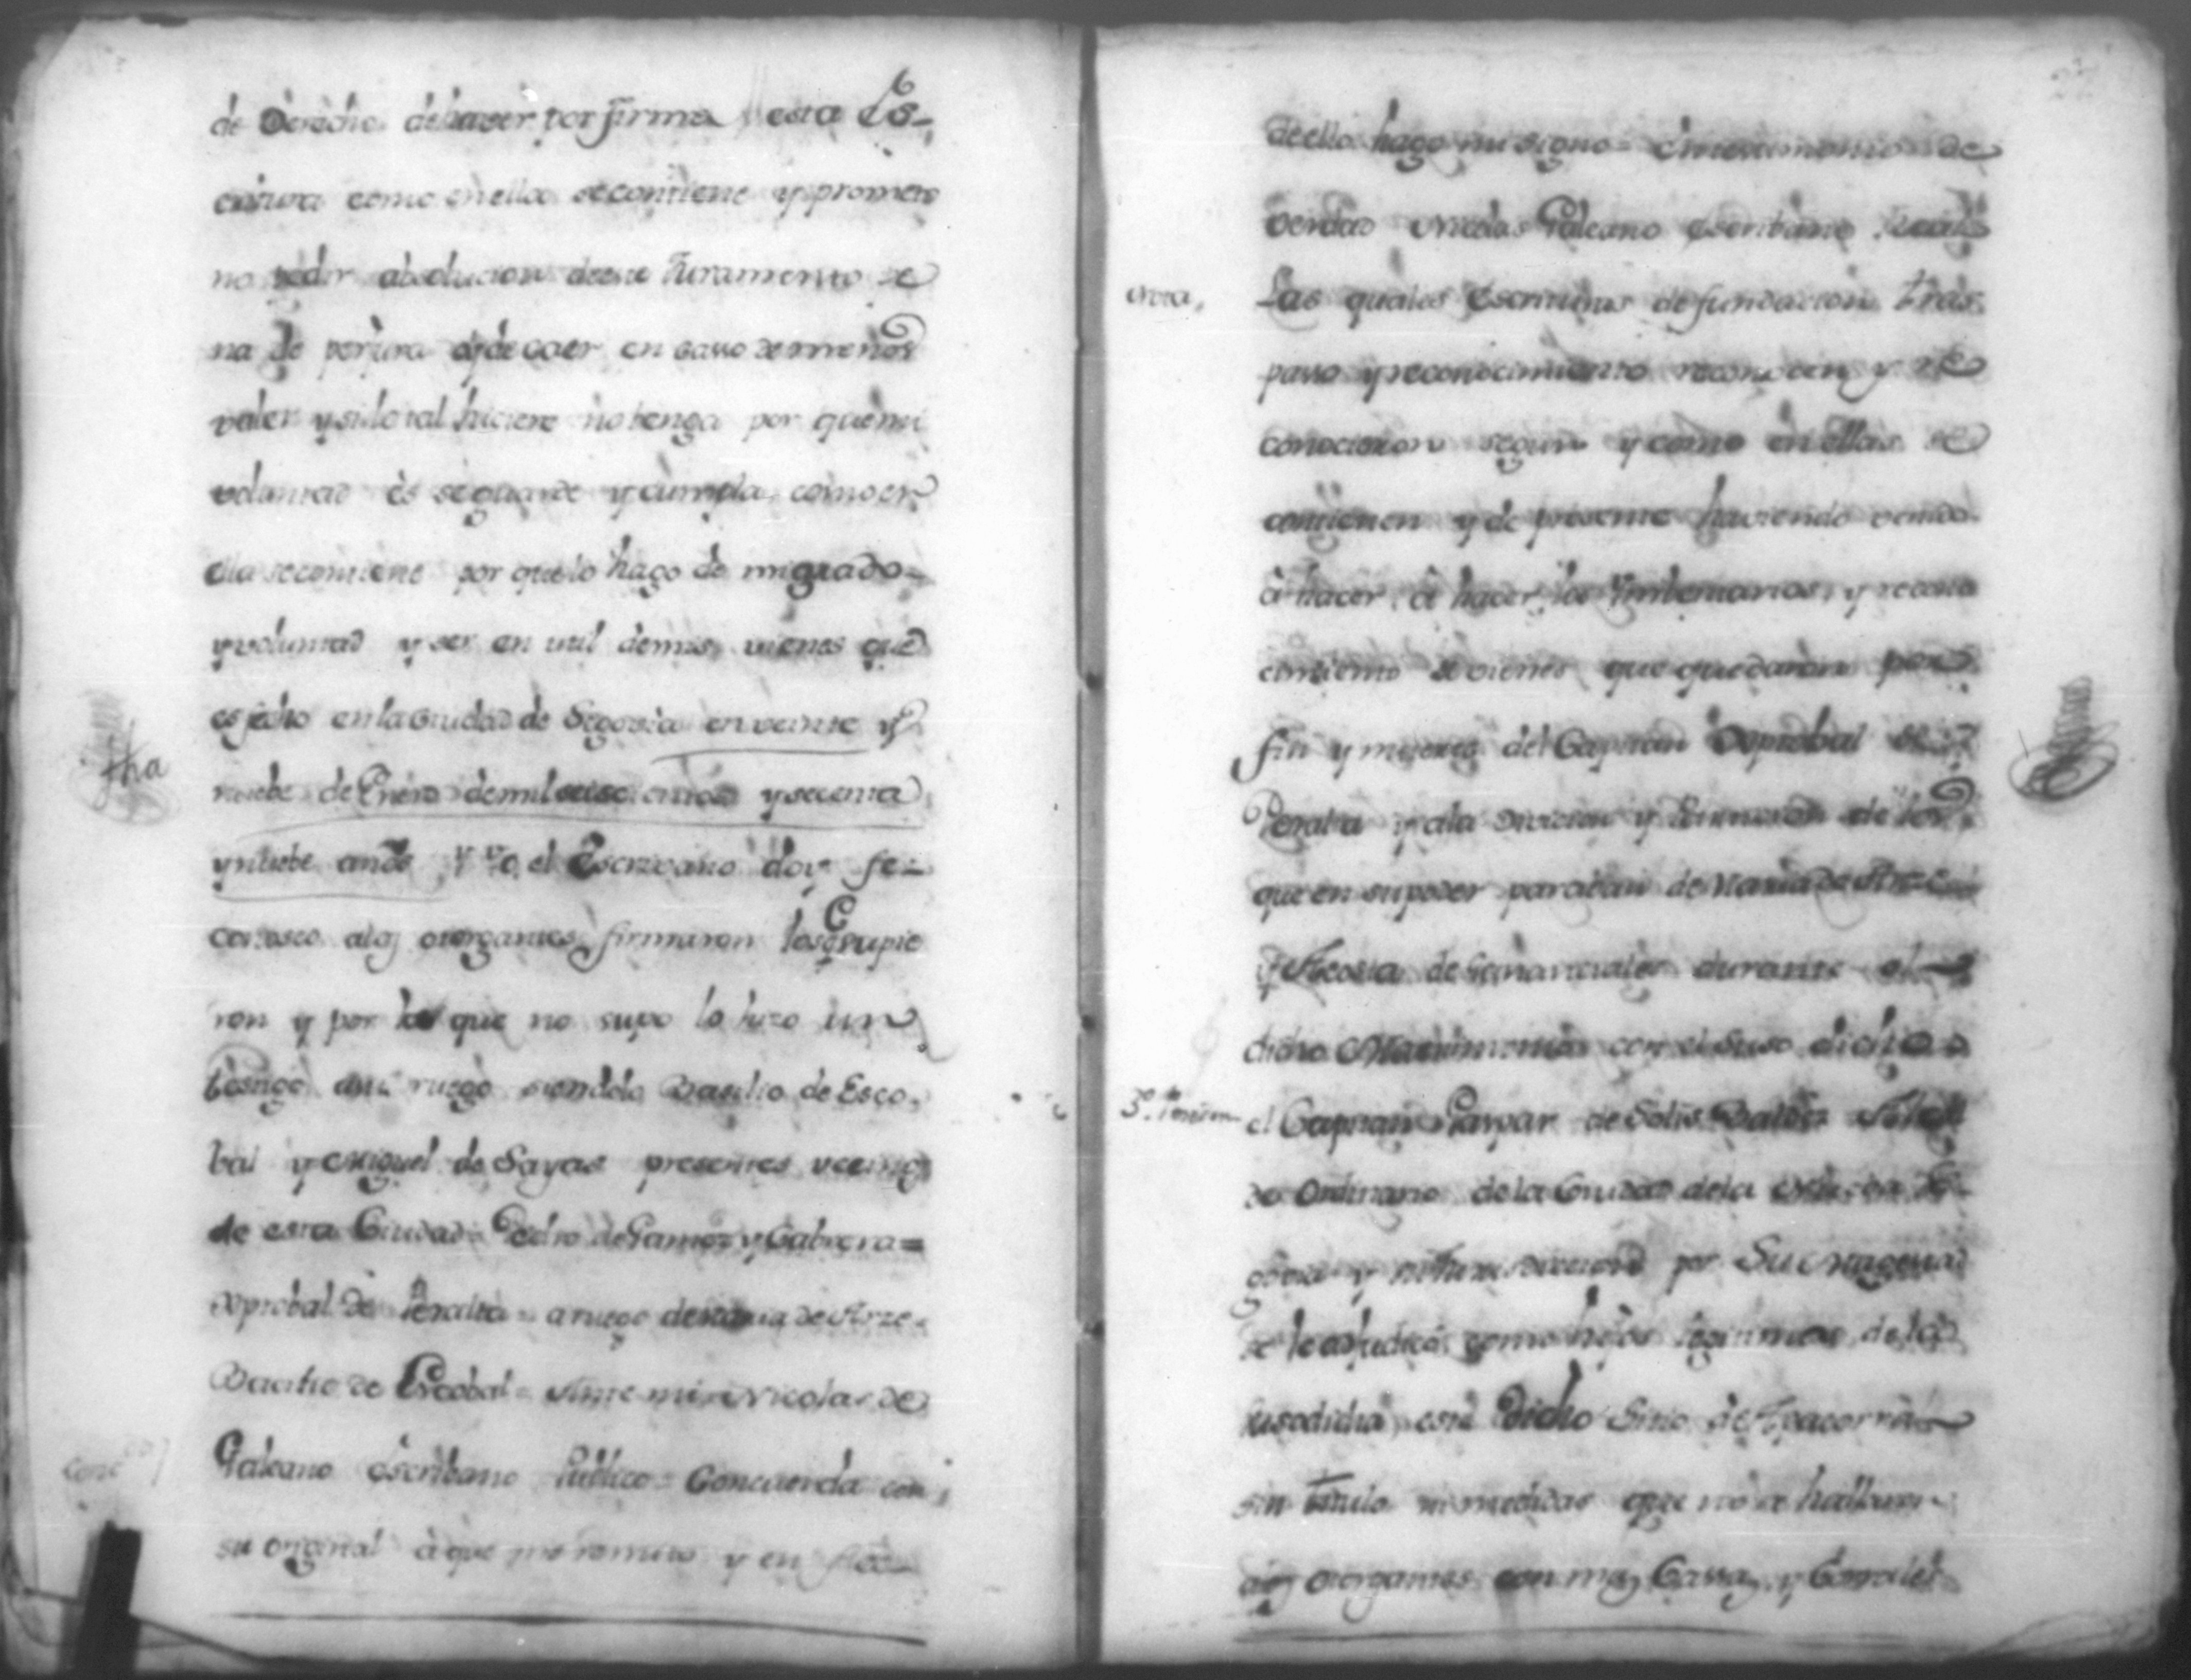 de derecho de haver por firme esta Es-
critura como en ella se contiene y prometo
no pedir absolucion deste Juramento pe
na de perjura y de caer en casso de menos
valer y si lo tal hiciere no tenga por que mi
voluntad es se guarde y cumpla como en
ella se contiene por que lo hago de mi grado
y voluntad y ser en util de mis vienes que
es fecho en la ciudad de Segovia en veinte y
fha
nuebe de Enero de mil seiscientos y setenta
y nuebe años y yo el Escrivano doy fe
conosco a los otorgantes firmaron los que supie
ron y por la que no supo lo hizo un
testigo a mi ruego siendolo Basilio de Esco
bal y Miguel de Sayas presentes vecinos
de esta Ciudad Pedro de Gamez y Cabrera =
Xptobal de Peralta a ruego de Maria de Arze
Basilio de Escobal = Ante mi Nicolas de
Galeano escribano Publico = Concuerda con
su original à que me remito y en fee
de ello hago mi signo = en testimonio de
verdad Nicolas Galeano escribano Real
Las quales Escrituras de fundacion tras
passo y reconocimiento reconocen y re
conocieron segun y como en ellas se
contienen y de presente haviendo venido
à hacer à hacer los Imbentarios, y recono
cimiento de vienes que quedaron por
fin y muerte del Capitan Xptobal de
Peralta y a la division y de los
que en su poder paraban de Maria de Arze
y Acosta durante el
dicho Matrimonio con el suso dicho
el Capitan Gaspar de Solis Alcal
de Ordinario de la Ciudad de la Nueva Se
govia y su Jurisdiccion por Su Magestad
se le adjudicó como hijos legitimos de la
susodicha este dicho Sitio de
sin titulo ni medidas que no se hallaron
a los otorgantes con mas Cassas, y Corrales